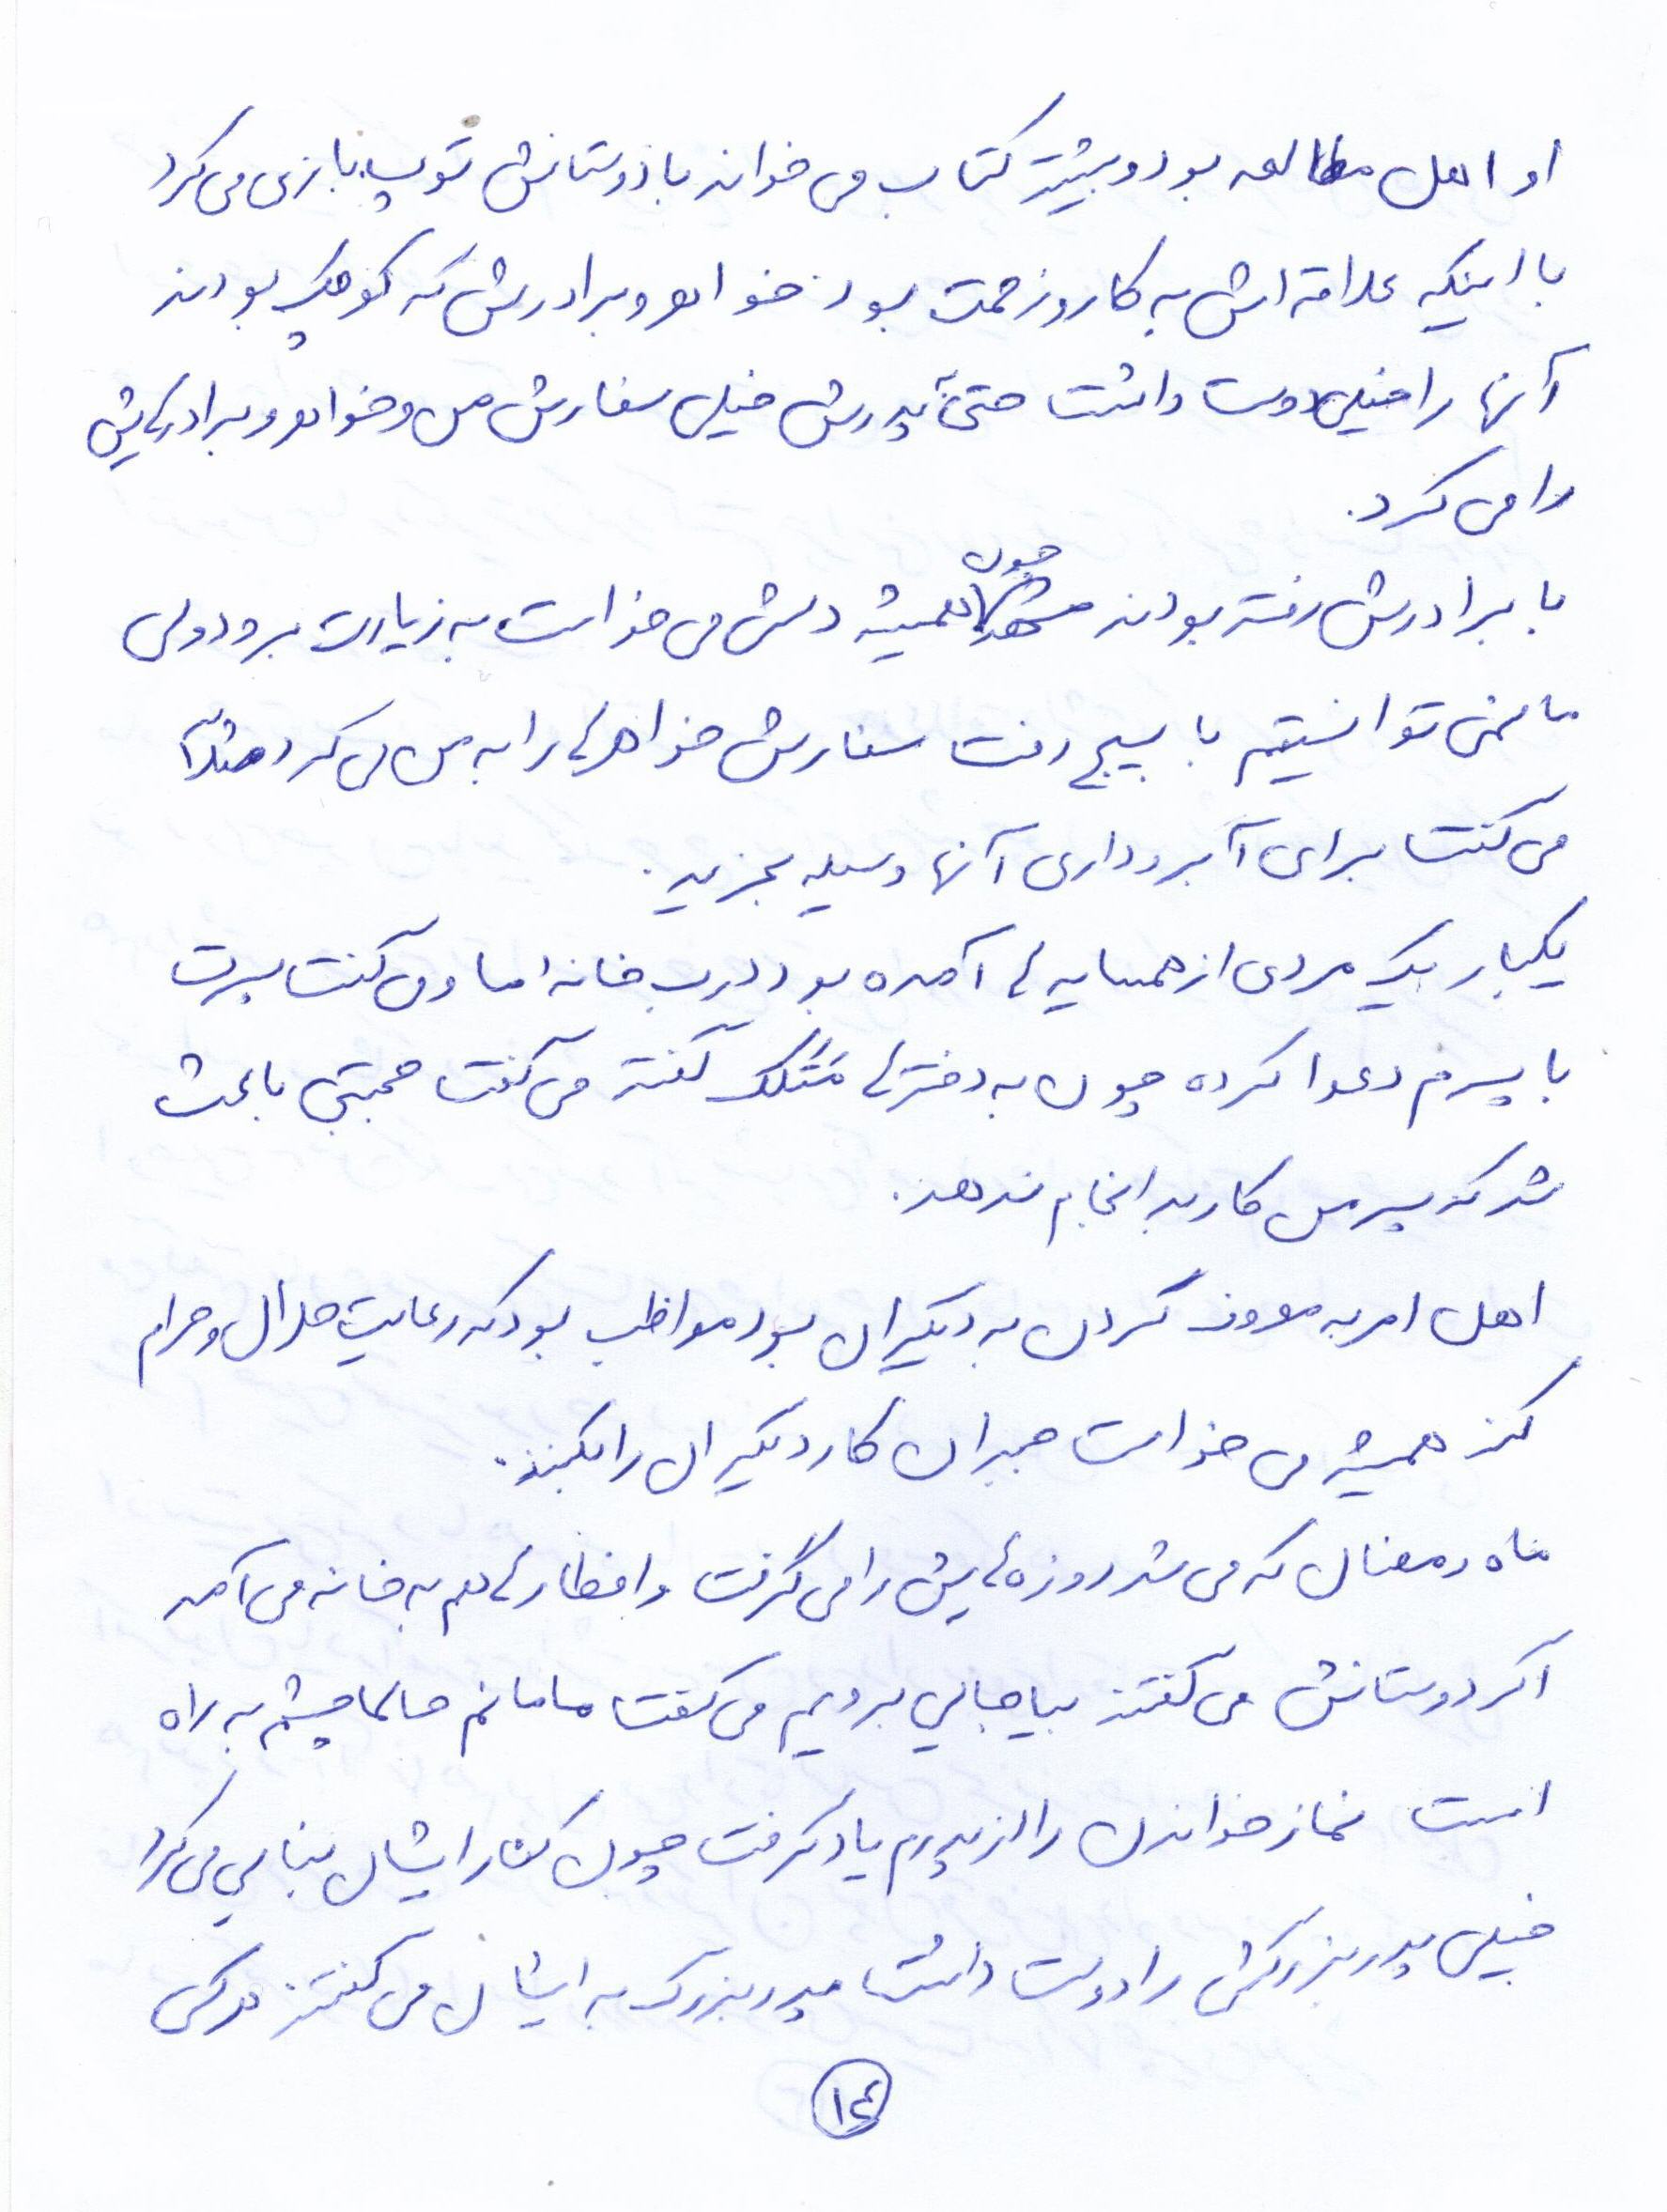 او اهل مطالعه بود و بیشتر کتاب می خواند با دوستانش توپ بازی می کرد
با اینکه علاقه اش به کار و زحمت بود خواهر و برادرش که کوچک بودند
آنها را خیلی دوست داشت حتیٰ پدرش خیلی سفارش من و خواهر و برادرهایش
را می کرد.
با برادرش رفته بودند مشهد چون همیشه دلش می خواست به زیارت برود ولی
ما نمی توانستیم با بسیج رفت سفارش خواهرها را به من می کرد مثلاً
می گفت برای آبروداری آنها وسیله بخرید.
یکبار یک مردی از همسایه ها آمده بود درب خانه اما وی گفت پسرت
با پسرم دعوا کرده چون به دخترها مَتَلک گفته می گفت مجتبی باعث
شد که پسر من کار بد انجام ندهد.
اهل امر به معروف کردن به دیگران بود مواظب بود که رعایت حلال و حرام
کند همیشه می خواست جبران کار دیگران را بکند.
ماه رمضان که می شد روزه هایش را می گرفت و افطارها هم به خانه می آمد
اگر دوستانش می گفتند بیا جایی برویم می گفت مامانم حالا چشم به راه
است نماز خواندن را از پدرم یاد گرفت چون کنار ایشان بنایی می کرد
خیلی پدربزرگش را دوست داشت پدربزرگ به ایشان می گفتند هر کس
۱٤